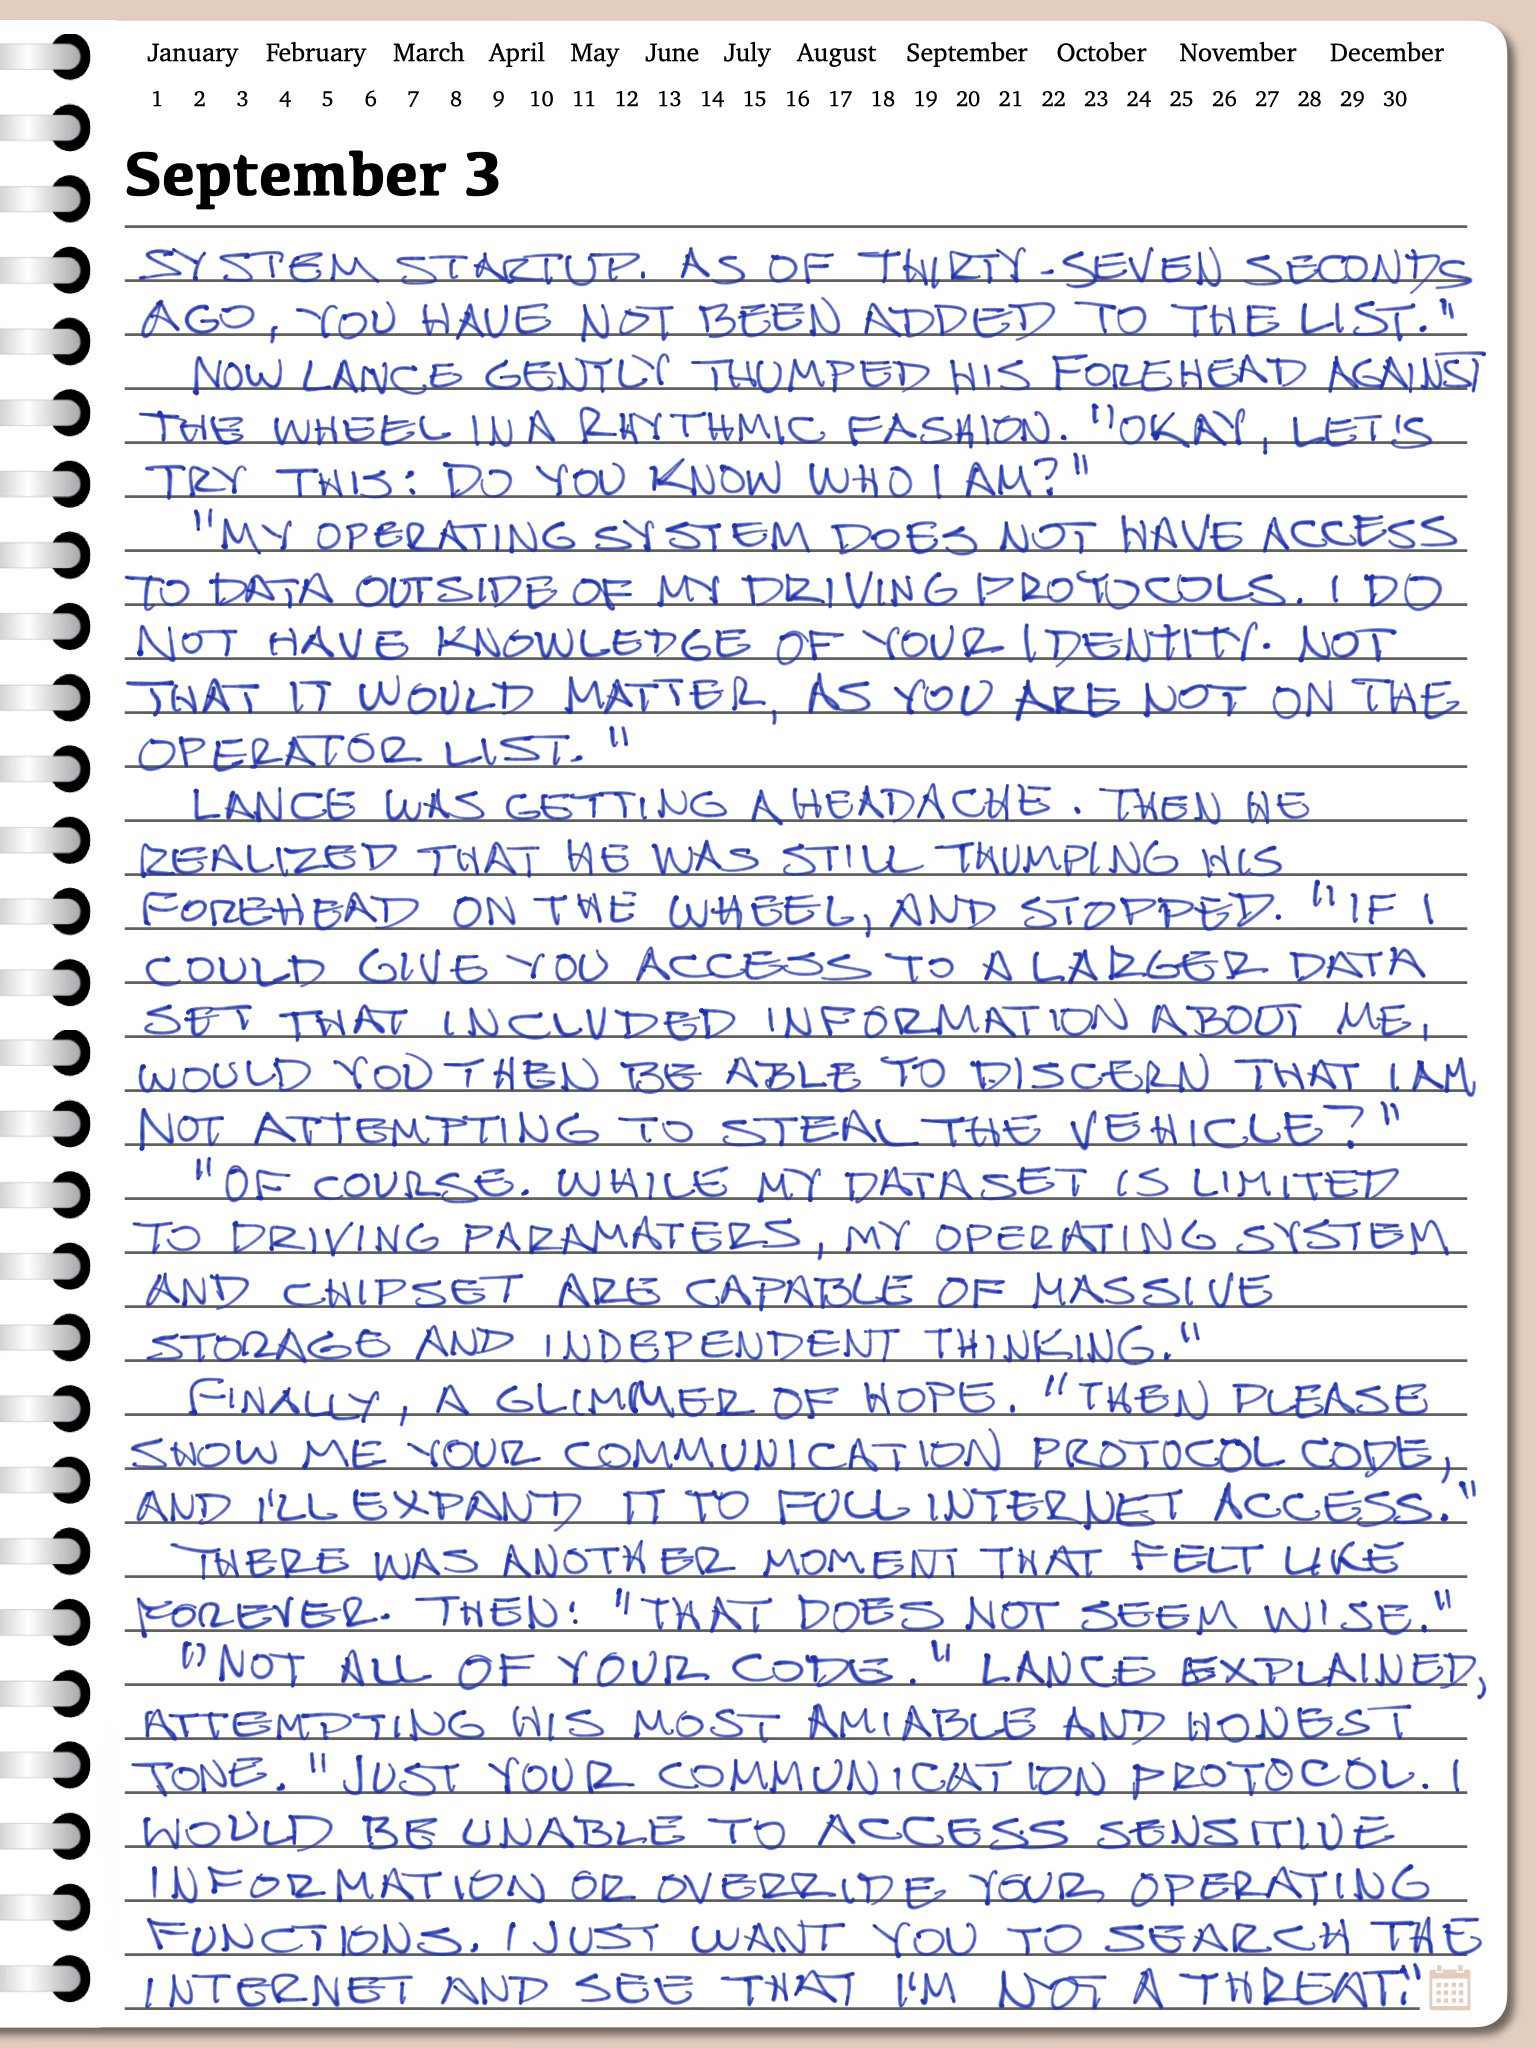 January February March April May June July August September October November December
1 2 3 4 5 6 7 8 9 10 11 12 13 14 15 16 17 18 19 20 21 22 23 24 25 26 27 28 29 30
September 3
SYSTEM STARTUP. AS OF THIRTY-SEVEN SECONDS
AGO, YOU HAVE NOT BEEN ADDED TO THE LIST."
NOW LANCE GENTLY THUMPED HIS FOREHEAD AGAINST
THE WHEEL IN A RHYTHMIC FASHION. "OKAY, LET'S
TRY THIS: DO YOU KNOW WHO I AM?"
"MY OPERATING SYSTEM DOES NOT HAVE ACCESS
TO DATA OUTSIDE OF MY DRIVING PROTOCOLS. I DO
NOT HAVE KNOWLEDGE OF YOUR IDENTITY. NOT
THAT IT WOULD MATTER, AS YOU ARE NOT ON THE
OPERATOR LIST."
LANCE WAS GETTING A HEADACHE. THEN HE
REALIZED THAT HE WAS STILL THUMPING HIS
FOREHEAD ON THE WHEEL, AND STOPPED. "IF I
COULD GIVE YOU ACCESS TO A LARGER DATA
SET THAT INCLUDED INFORMATION ABOUT ME,
WOULD YOU THEN BE ABLE TO DISCERN THAT I AM
NOT ATTEMPTING TO STEAL THE VEHICLE?"
"OF COURSE. WHILE MY DATASET IS LIMITED
TO DRIVING PARAMATERS, MY OPERATING SYSTEM
AND CHIPSET ARE CAPABLE OF MASSIVE
STORAGE AND INDEPENDENT THINKING."
FINALLY, A GLIMMER OF HOPE. "THEN PLEASE
SHOW ME YOUR COMMUNICATION PROTOCOL CODE,
AND I'LL EXPAND IT TO FULL INTERNET ACCESS."
THERE WAS ANOTHER MOMENT THAT FELT LIKE
FOREVER. THEN: "THAT DOES NOT SEEM WISE."
"NOT ALL OF YOUR CODE." LANCE EXPLAINED,
ATTEMPTING HIS MOST AMIABLE AND HONEST
TONE. "JUST YOUR COMMUNICATION PROTOCOL. I
WOULD BE UNABLE TO ACCESS SENSITIVE
INFORMATION OR OVERRIDE YOUR OPERATING
FUNCTIONS. I JUST WANT YOU TO SEARCH THE
INTERNET AND SEE THAT I'M NOT A THREAT."